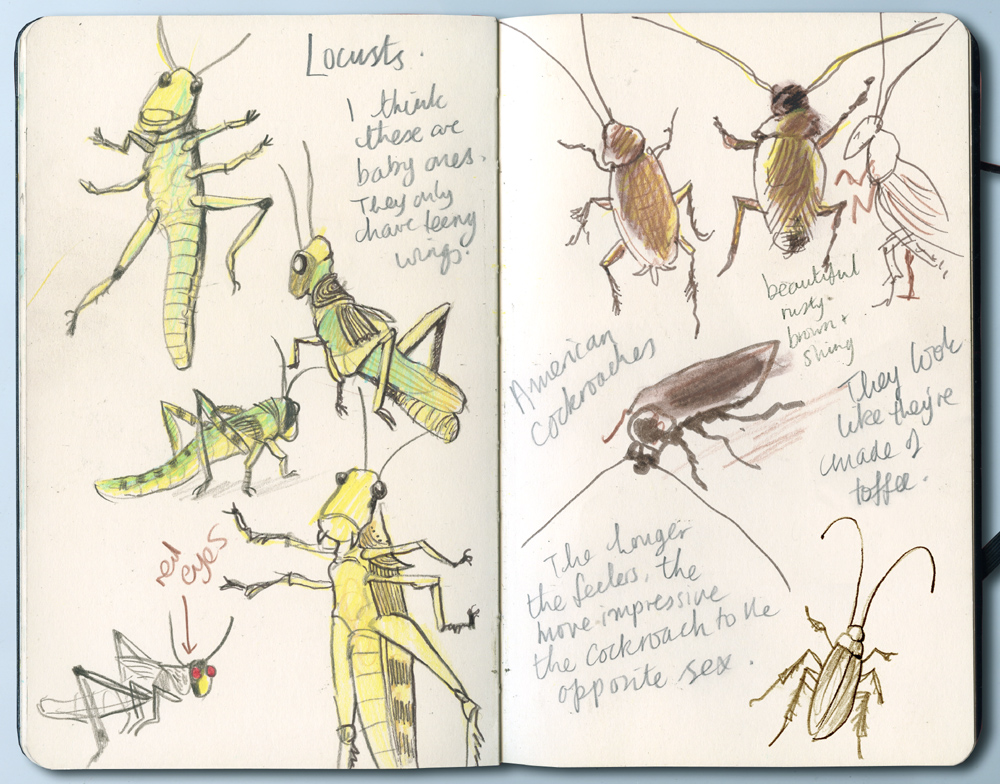 Locusts.
I think
these are
baby ones.
They only
have teeny
wings.
red
eyes
beautiful
rusty
brown +
shiny
American
Cockroaches
They look
like they're
made of
toffee.
The longer
the feelers, the
more impressive
the cockroach to the
opposite sex.